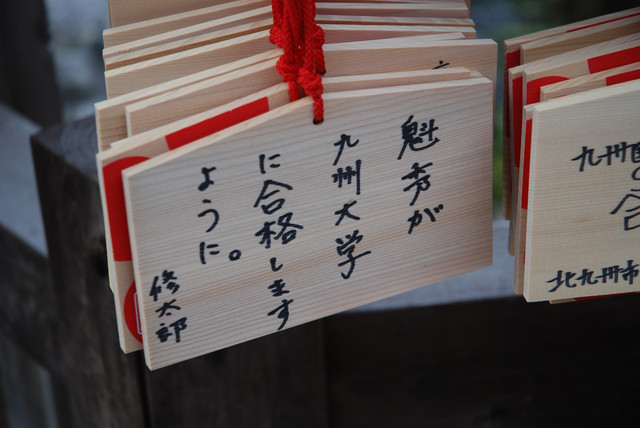 が
九州大学
に合格します
ように。
修太郎
九州
合
北九州市